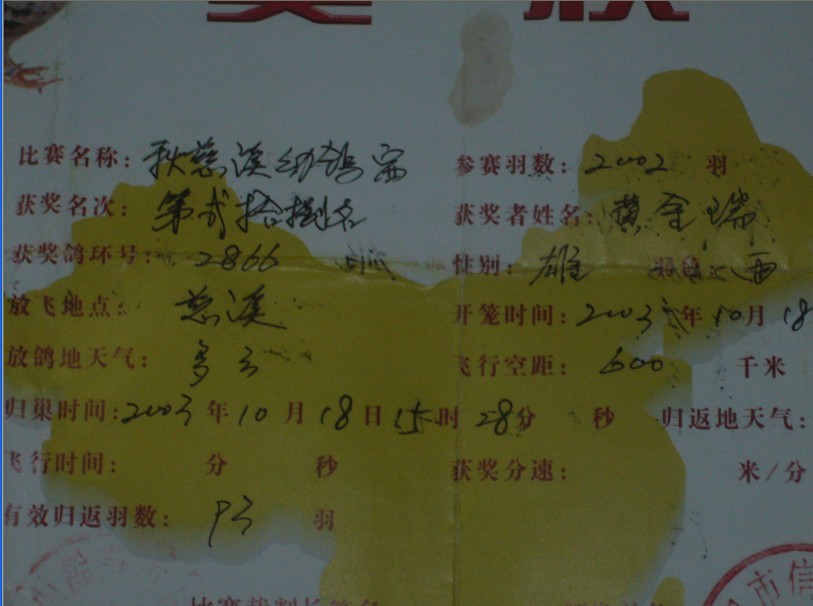 奖状
比赛名称：秋慈溪幼鸽赛 参赛羽数：2002 羽
获奖名次：第贰拾捌名 获奖者姓名：黄金瑞
获奖鸽环号：2866 性别：雄 羽色：雨
放飞地点：慈溪 开笼时间：2003年10月18
放鸽地天气：多云 飞行空距：600 千米
归巢时间：2003年10月18日15时28分 秒 归返地天气：
飞行时间： 分 秒 获奖分速： 米/分
有效归返羽数： 羽
比赛裁判长签名
市信